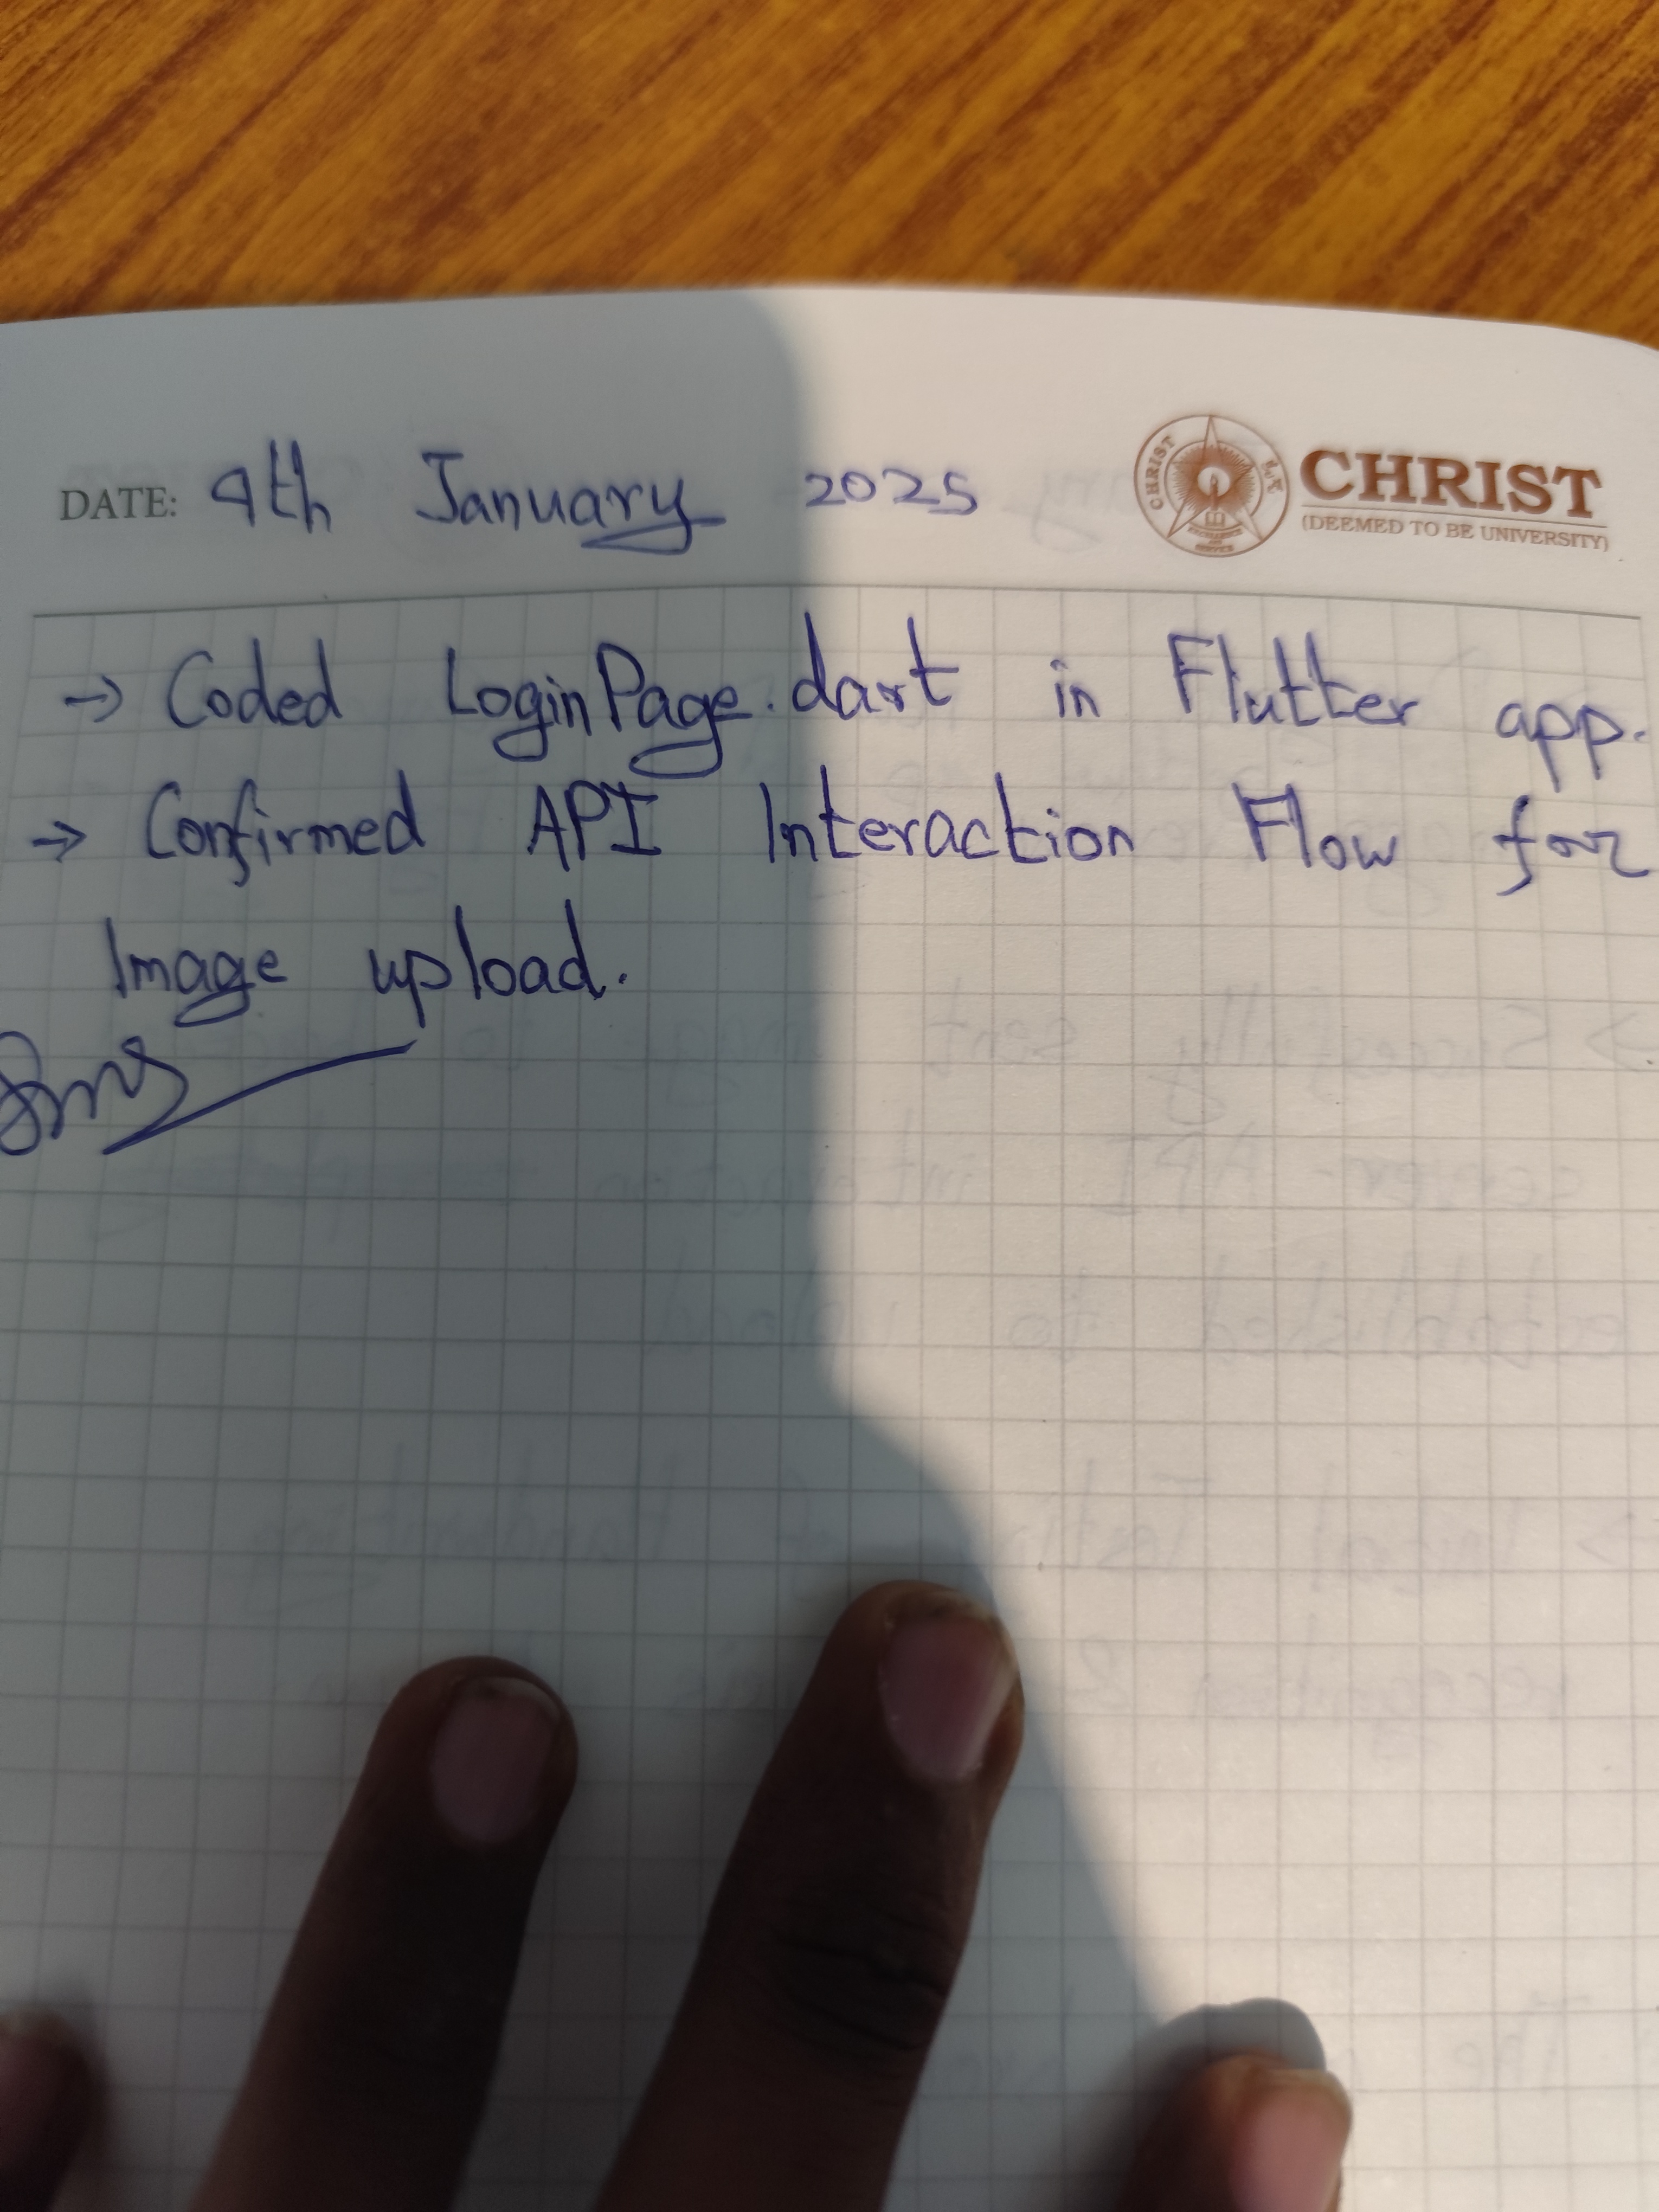 DATE: 9th January 2025
CHRIST
(DEEMED TO BE UNIVERSITY)
→ Coded LoginPage.dart in Flutter app.
→ Confirmed API Interaction Flow for
Image upload.